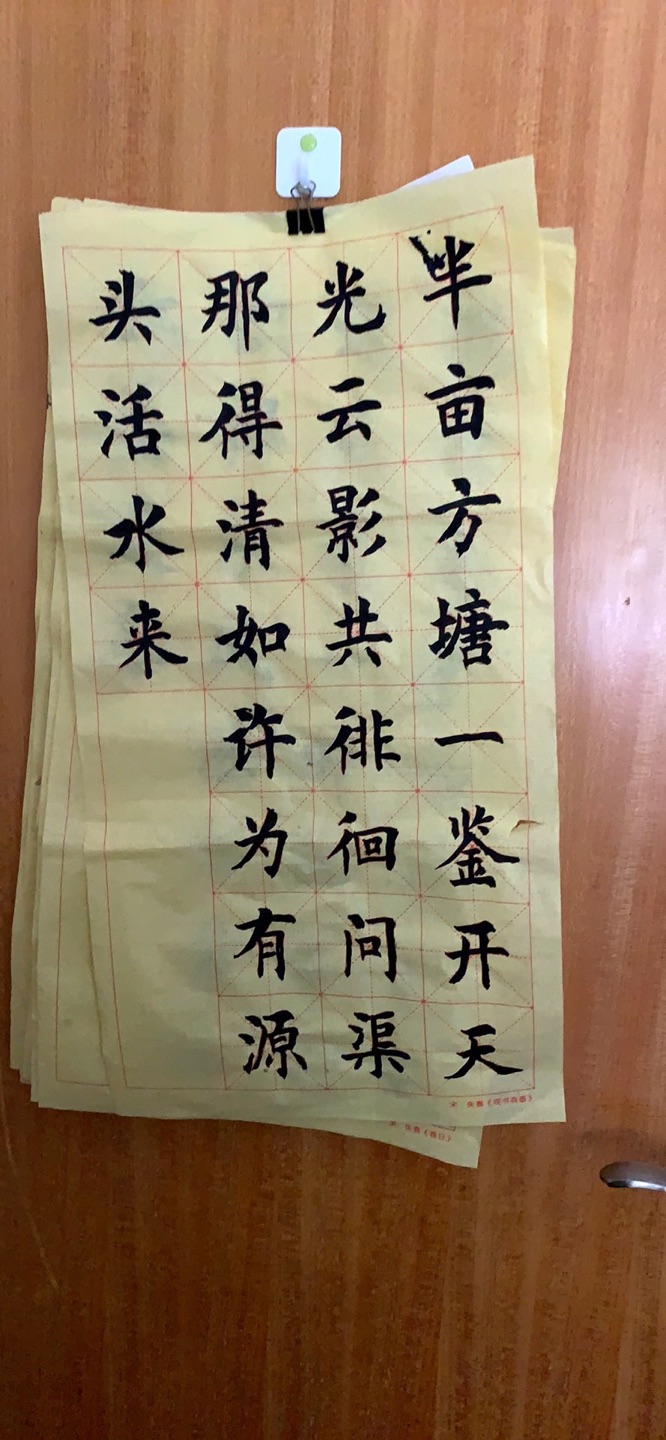 半亩方塘一鉴开天
光云影共徘徊问渠
那得清如许为有源
头活水来
宋 朱熹《观书有感》
宋 朱熹《春日》